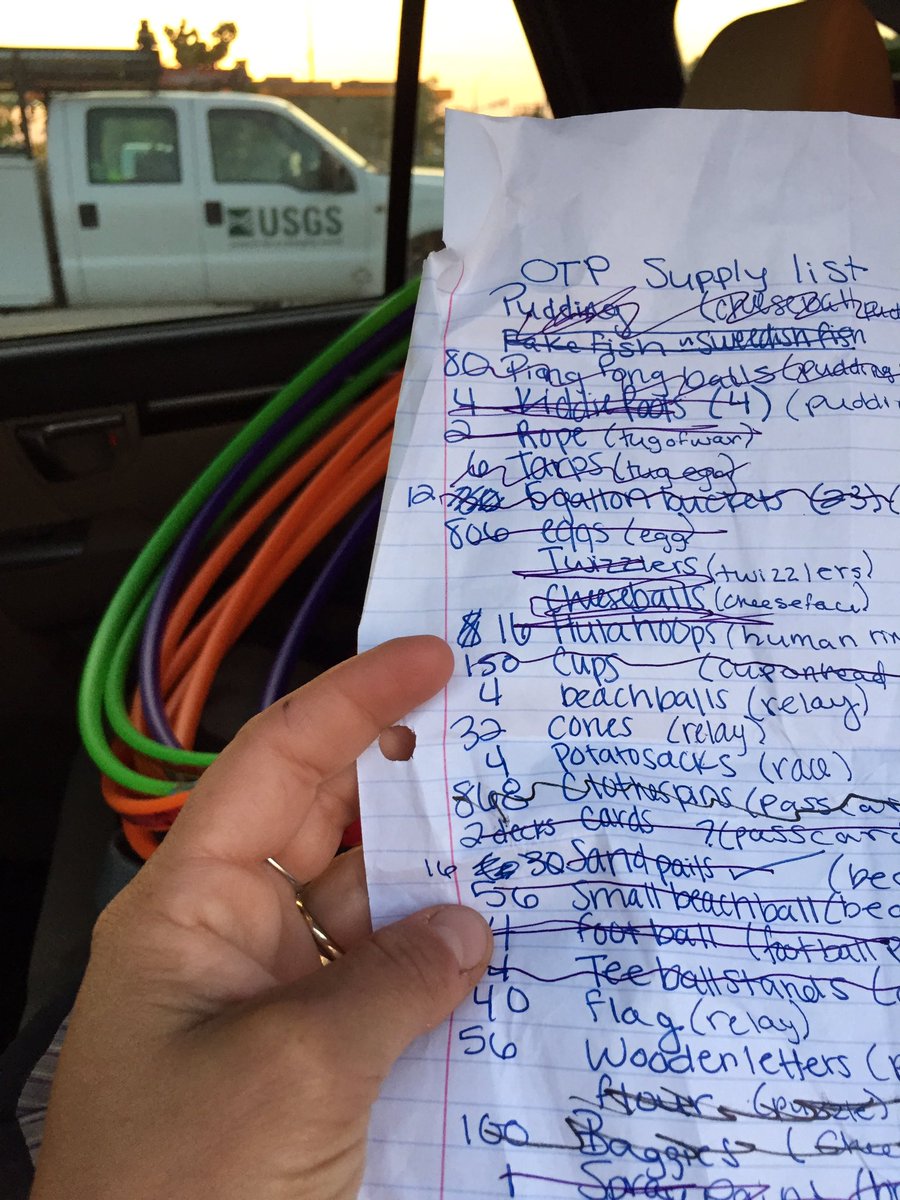 USGS
OTP Supply list
Pudding
Fake fish swedish fish
80 Ping Pong balls (pudding
4 Kiddie Pools (4) (puddi
2 Rope (tug of war)
6 Tarps (tug egg)
12 5 gallon buckets
806 eggs (egg)
Twizzlers (twizzlers)
Cheeseballs (cheeseface)
16 Hula hoops (human
150 cups (cup on head
4 beachballs (relay)
32 cones (relay)
4 Potatosacks (race)
868 Clothespins (pass
2 decks Cards ? (pass card
16 30 Sand pails (bea
56 Small beachball (bea
4 football (football
4 Tee ball stands (
40 flag (relay)
56 Wooden letters (
flour (puzzle)
160 Baggies (
1